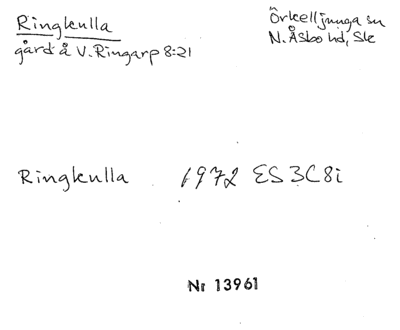 Ringkulla
gård å V. Ringarp 8:21
Örkelljunga sn
N. Åsbo hd, Sk
Ringkulla 1972 ES 3C8i
Nr 13961